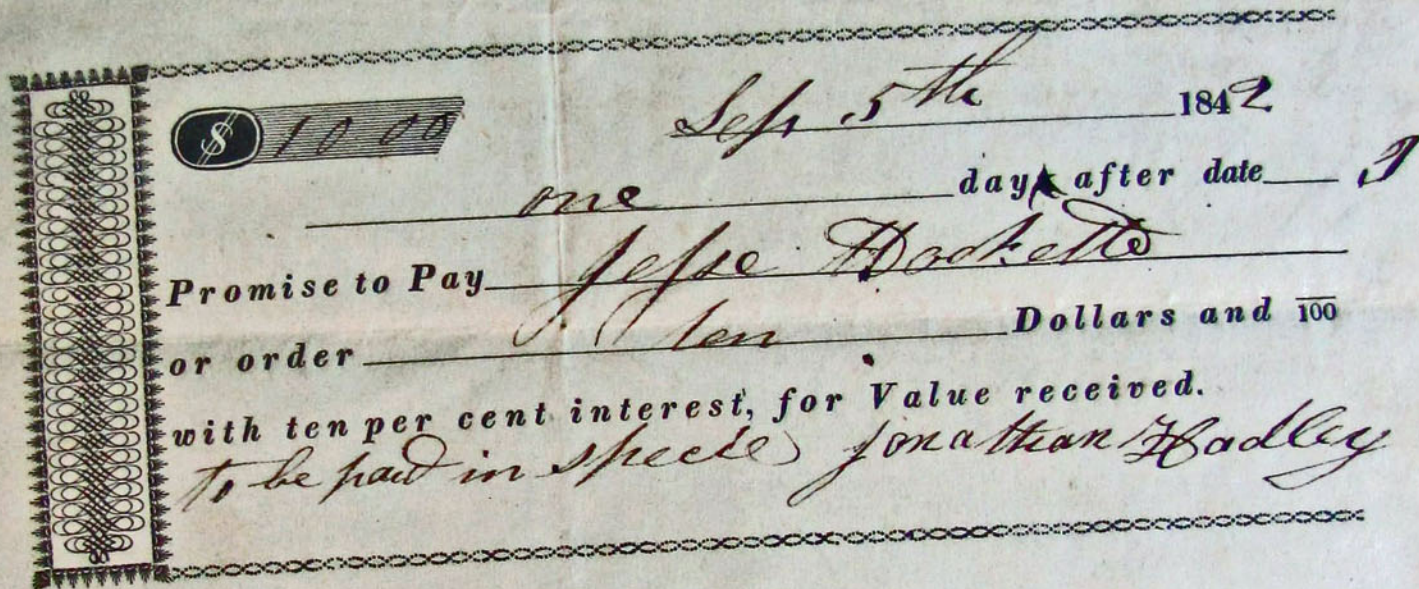 $ 10 00 Sep 5th 1842
one day after date I
Promise to Pay Jesse Hocketts
or order ten Dollars and 100
with ten per cent interest, for Value received.
to be paid in specie Jonathan Hadley